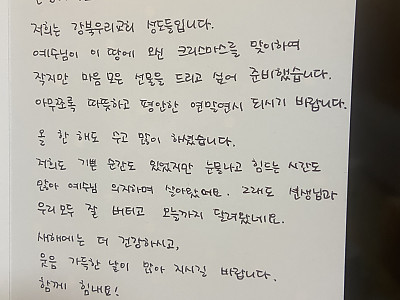 저희는 강북우리교회 성도들입니다.
예수님이 이 땅에 오신 크리스마스를 맞이하여
작지만 마음 모은 선물을 드리고 싶어 준비했습니다.
아무쪼록 따뜻하고 평안한 연말연시 되시기 바랍니다.
올 한해도 수고 많이 하셨습니다.
저희도 기쁜 순간도 있었지만 눈물나고 힘드는 시간도
많아 예수님 의지하며 살아왔어요. 그래도 선생님과
우리 모두 잘 버티고 오늘까지 달려왔네요.
새해에는 더 건강하시고,
웃음 가득한 날이 많아 지시길 바랍니다.
함께 힘내요!